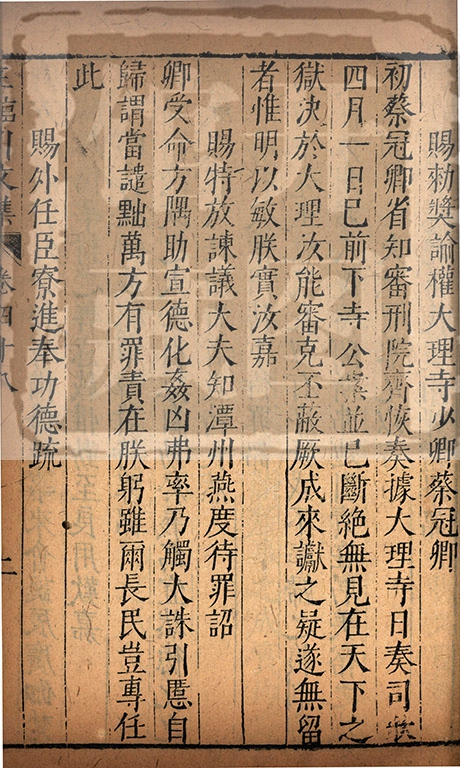 賜勑獎諭權大理寺少卿蔡冠卿
初蔡冠卿省知審刑院齊恢奏據大理寺日奏司
四月一日巳前下寺公案並已斷絕無見在天下之
獄決於大理汝能審克丕蔽厥成來讞之疑遂無留
者惟明以敏朕實汝嘉
賜特放諫議大夫知潭州燕度待罪詔
卿受命方隅助宣德化姦凶弗率乃觸大誅引慝自
歸謂當譴黜萬方有罪責在朕躬雖爾長民豈專任
此
賜外任臣寮進奉功德疏
王臨川文集 卷四十八 二